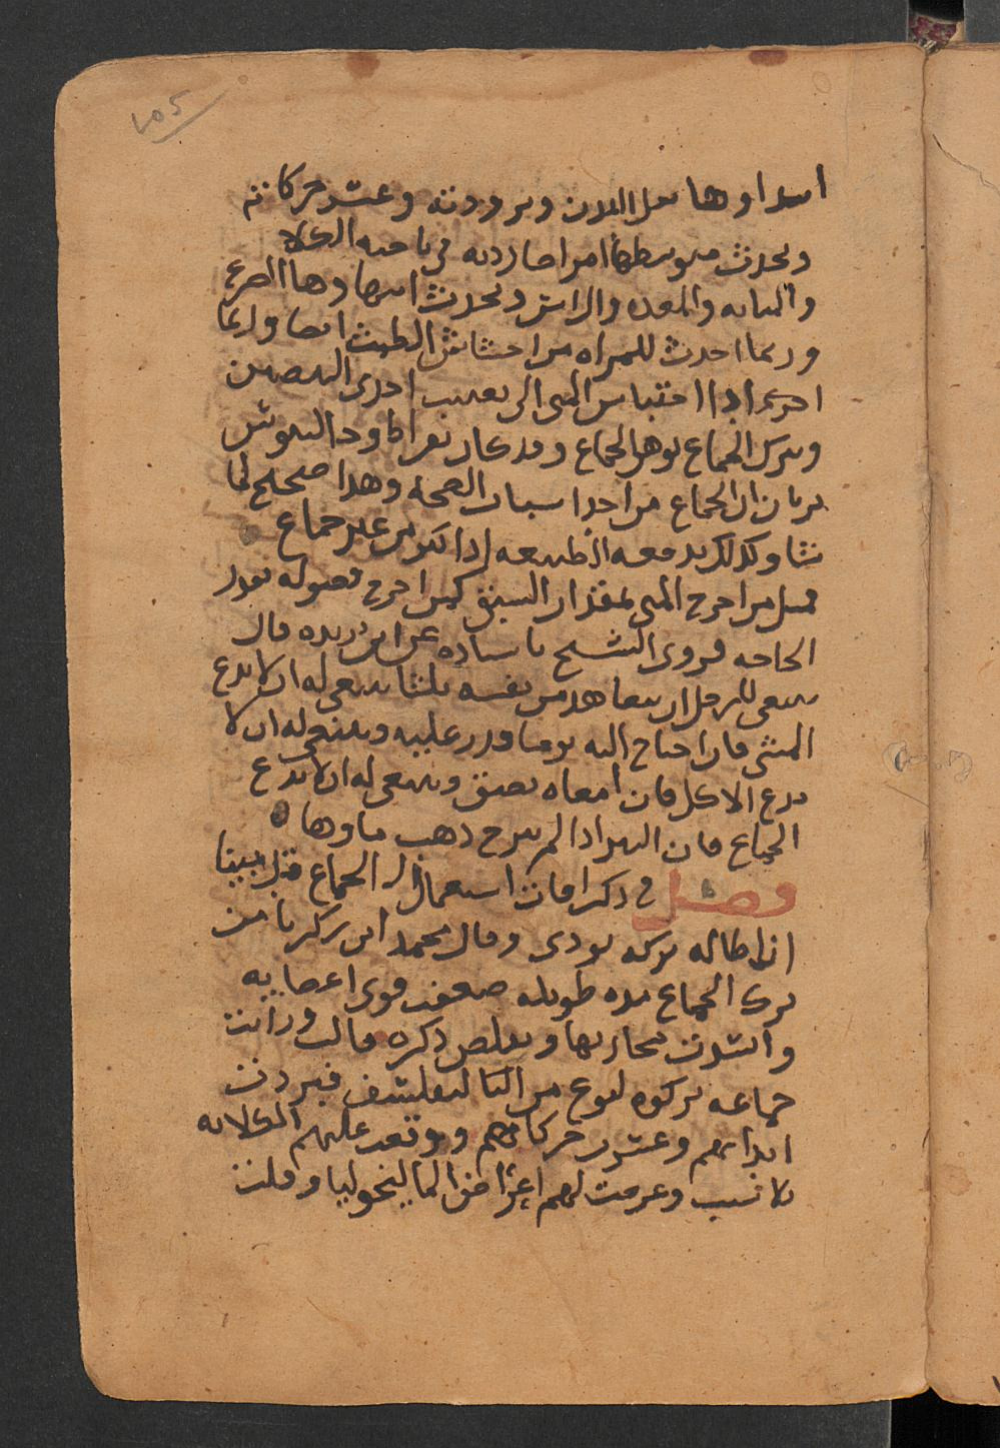 ١٠٥
اسداوها ىقل البدن وبرودته وعسر حركاته
ويحدث متوسطها امراضا رديه في ناحيه الكلا
والمثانه والمعده والراس ويحدث انتهاوها الصرع
وربما احدث للمراه من احتناق الطمث ايضا وربما
احوج اذا احتباس المنى الى تعفين احدى البيضتين
وبترك الجماع يوهن الجماع وقد كان بقراط وجالينوس
يريان ان الجماع من احد اسباب الصحه وهذا صحيح لما
شا وكذلك يدفعه الطبيعه اذا كثر من غير جماع
فمن اخرج المنى لمقدار
الحاجه فروى الشيخ باسناده عن ابن بريده قال
ينبغى للرجل ان يتعاهد من نفسه ثلثا ينبغى له ان لا يدع
المشى فان احتاج اليه يوما قدر عليه وينبغى له ان لا
يدع الاكل فان امعاه تضيق وينبغى له ان لا يدع
الجماع فان البير اذا لم تنزح ذهب ماوها
فصل في ذكر افات استعمال الجماع قد بينا
ان اطاله تركه يوذى وقال محمد ابن زكريا من
ترك الجماع مده طويله ضعفت قوى اعصابه
وانسدت مجاريها وتقلص ذكره قال ورايت
جماعه تركوه لنوع من التقشف فبردت
ابدانهم وعسرت حركاتهم ووقعت عليهم الكابه
بلا سبب وعرضت لهم اعراض الماليخوليا وقلت